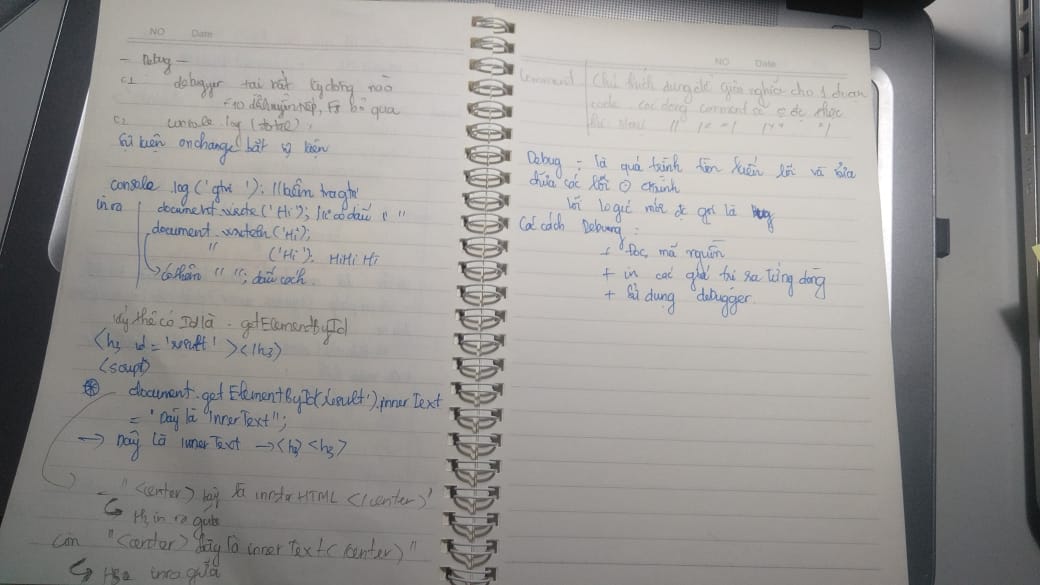 NO Date
- Debug -
C1 debugger tại bất kỳ dòng nào
F10 để chuyển tiếp, F8 bỏ qua
C2 console.log(total);
Sự kiện onchange bắt sự kiện
console.log('gtri'); // biến trả gtrị
in ra document.write('Hi'); // có dấu " "
document.writeln('Hi');
" ('Hi'); HiHi Hi
có thêm " "; dấu cách
lấy thẻ có Id là . getElementById
<h3 id = 'result' ></h3>
(script)
document.getElementById('result').innerText
= "Đây là innerText";
→ Đây là innerText → <h3> <h3>
"<center> Đây là innerHTML </center>"
in ra giữa
còn "<center> Đây là innerText </center>"
in ra giữa
NO Date
Comment Chú thích dùng để giải nghĩa cho 1 đoạn
code các dòng comment sẽ đc thực
// /* */ /** */
Debug = là quá trình tìm kiếm lỗi và sửa
chữa các lỗi
lỗi logic mới đc gọi là bug
Các cách Debug :
+ Đọc mã nguồn
+ in các giá trị ra từng dòng
+ sử dụng debugger.